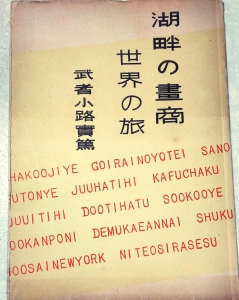 湖畔の畫商
世界の旅
武者小路實篤
HAKOOJIYE GOIRAINOYOTEI SANO
UTONYE JUUHATIHI KAFUCHAKU
JUUITIHI DOOTIHATU SOOKOOYE
OOKANPONI DEMUKAEANNAI SHUKU
HOOSAINEWYORK NITEOSIRASESU